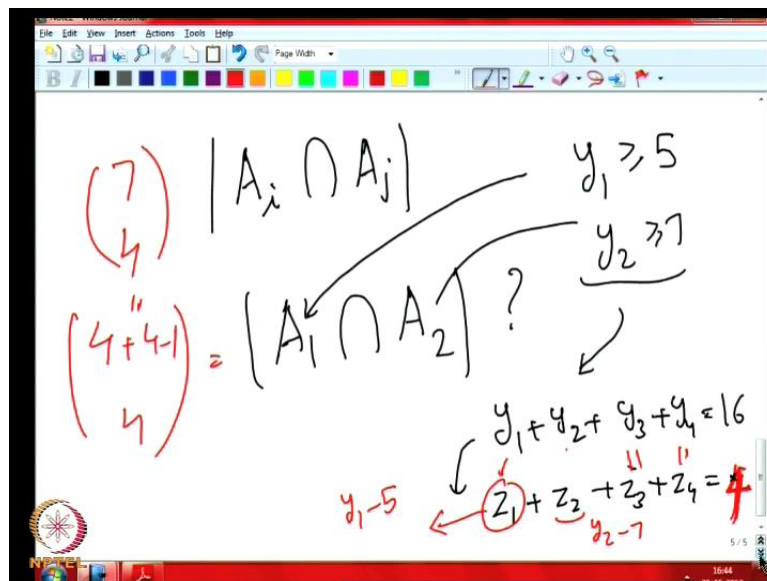 File Edit View Insert Actions Tools Help
Page Width
B I
(7 4) |A_i ∩ A_j| y_1 ≥ 5
y_2 ≥ 7
(4+4-1 4) = |A_1 ∩ A_2| ?
y_1 + y_2 + y_3 + y_4 = 16
y_1-5 z_1 + z_2 + z_3 + z_4 = 4
y_2-7
5/5
NPTEL
16:44